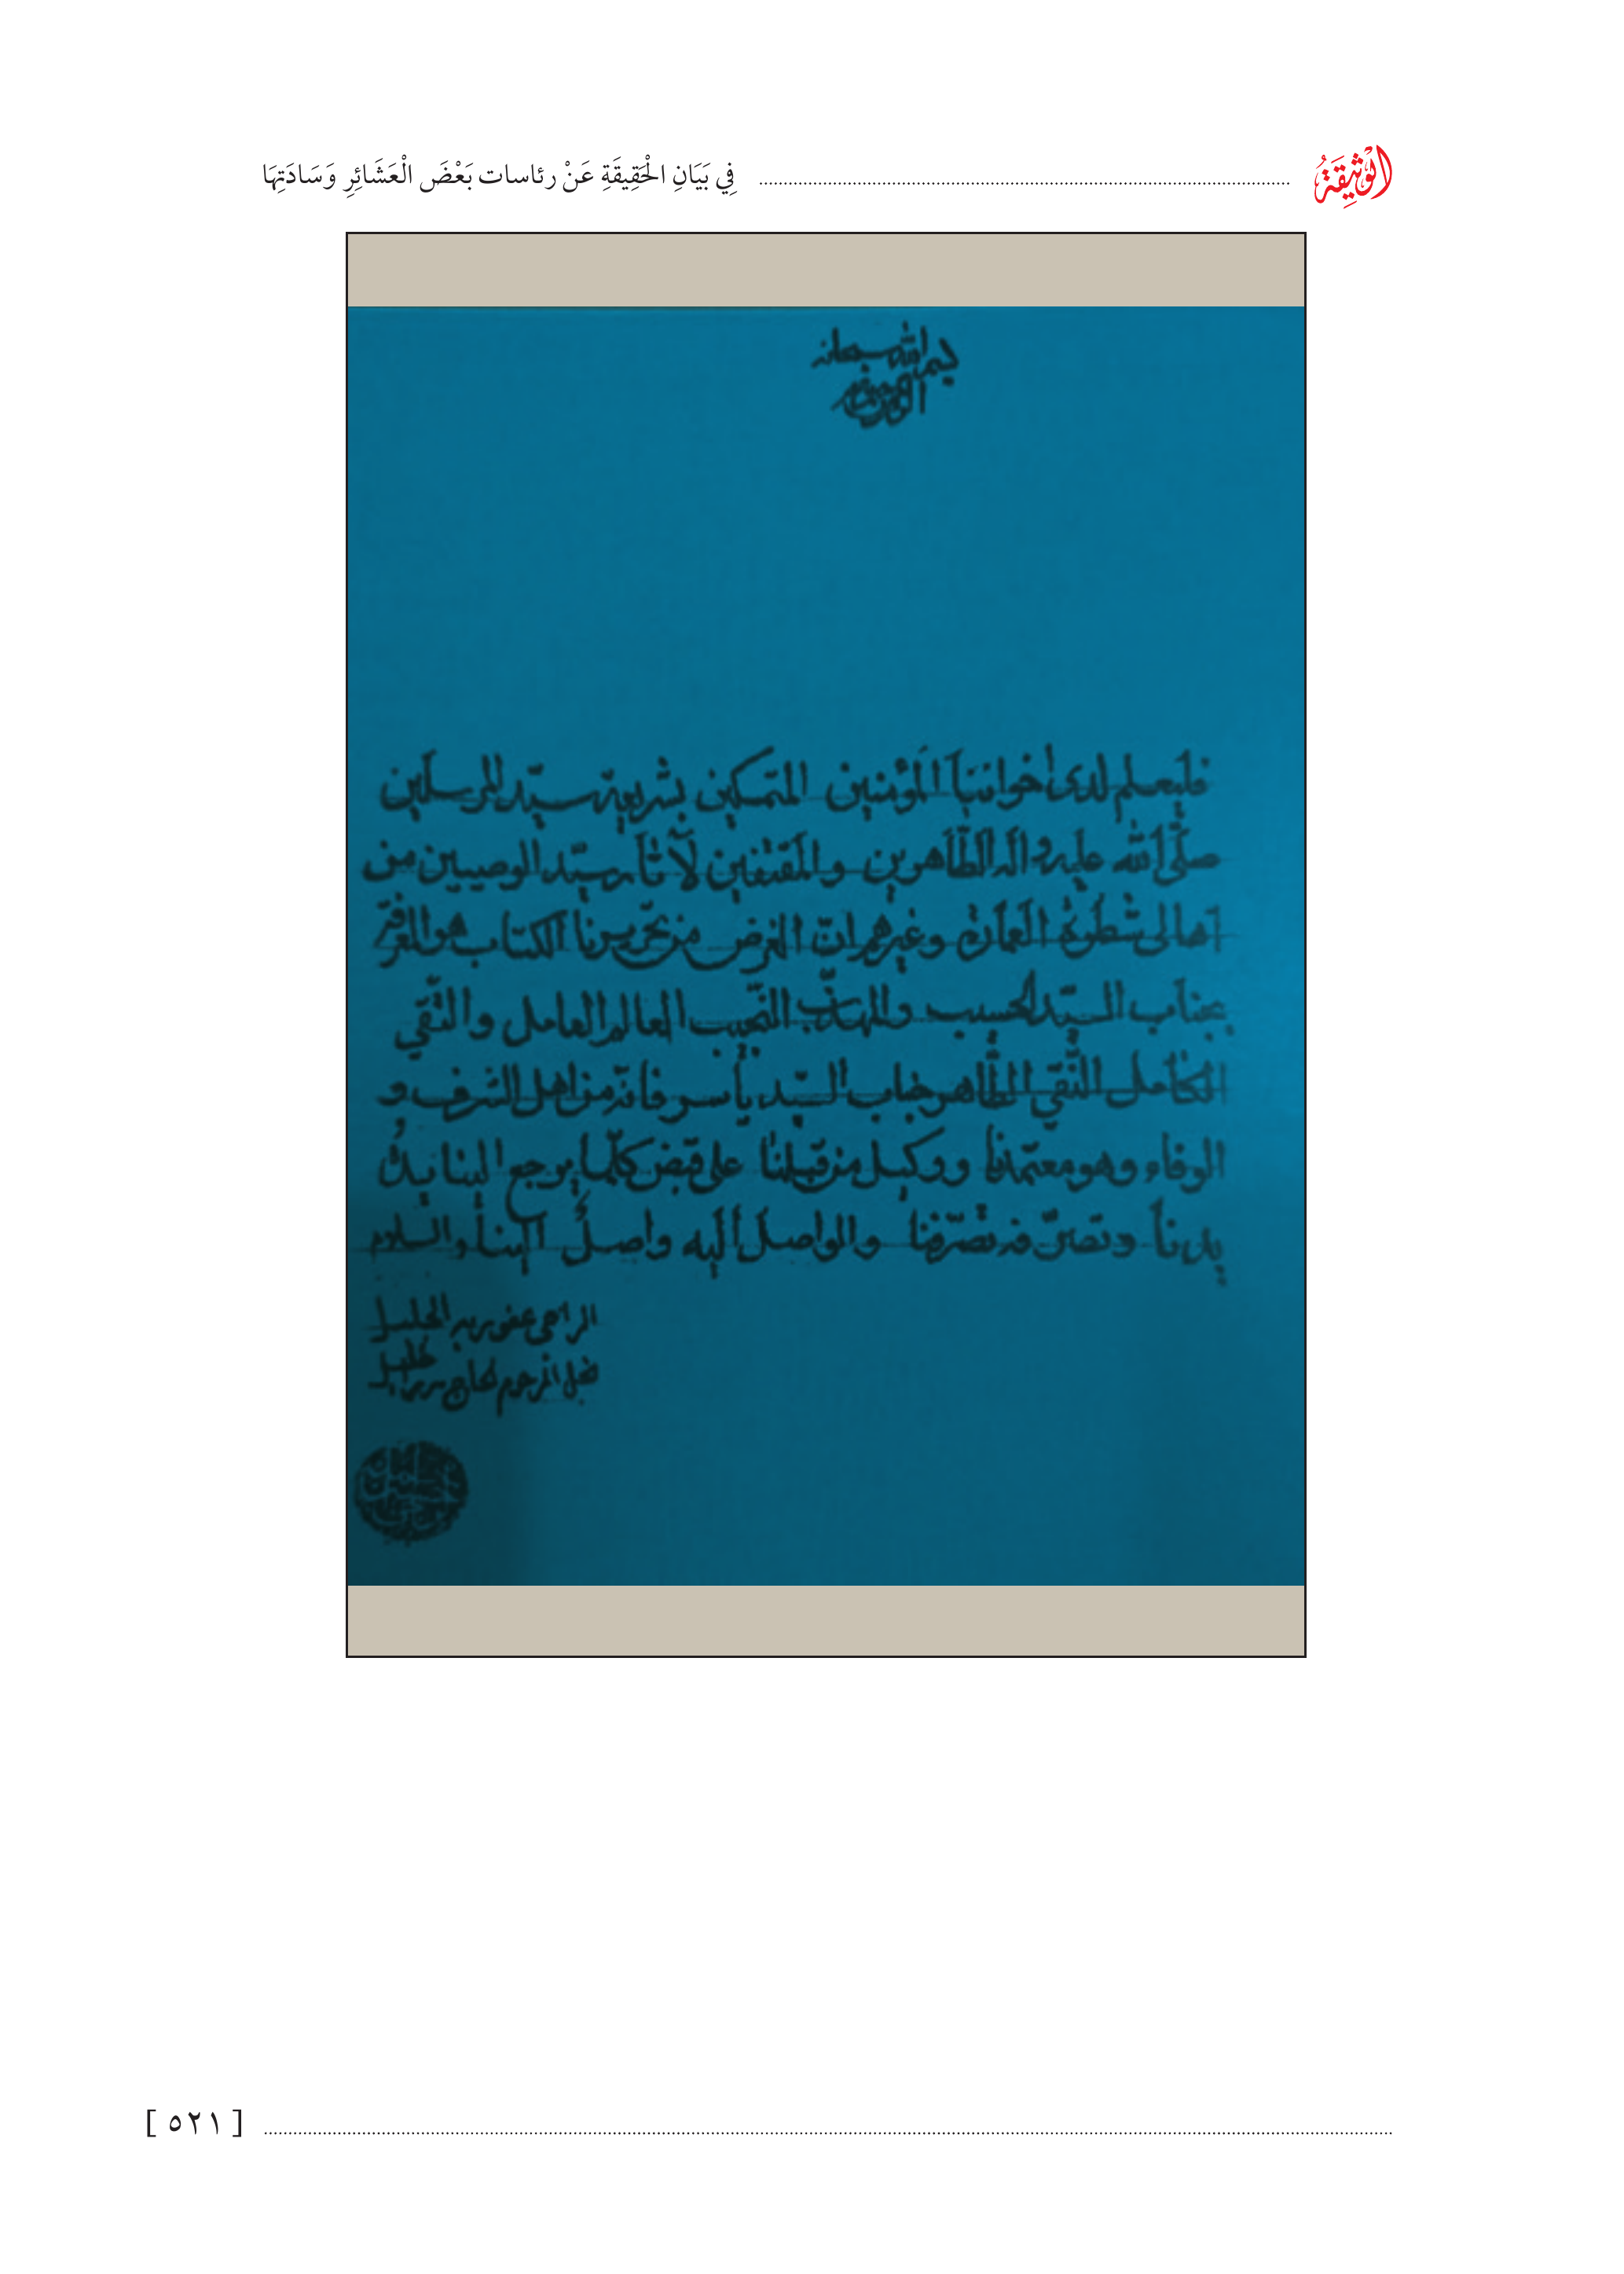 الْوَثِيقَةُ فِي بَيَانِ الْحَقِيقَةِ عَنْ رئاسات بَعْضَ الْعَشَائِرِ وَسَادَتِهَا
بسم الله سبحانه
فليعلم لدى اخواننا المؤمنين المتمسكين بشريعة سيّد المرسلين
صلّى الله عليه وآله الطّاهرين والمقتفين لآثار سيّد الوصيين من
اهالي شطرة العمارة وغيرهم انّ الغرض من تحريرنا الكتاب هو المعرفة
بجناب السيّد الحسيب والمهذّب النّجيب العالم العامل والتّقي
الكامل النّقي الطّاهر جناب السيّد ياسر فانّه من اهل الشرف و
الوفاء وهو معتمدنا ووكيل من قبلنا على قبض كلّما يرجع الينا نيده
يدنا وتصرّفه تصرّفنا والواصل اليه واصل الينا والسلام
الراجي عفو ربه الجليل
[ ٥٢١ ]